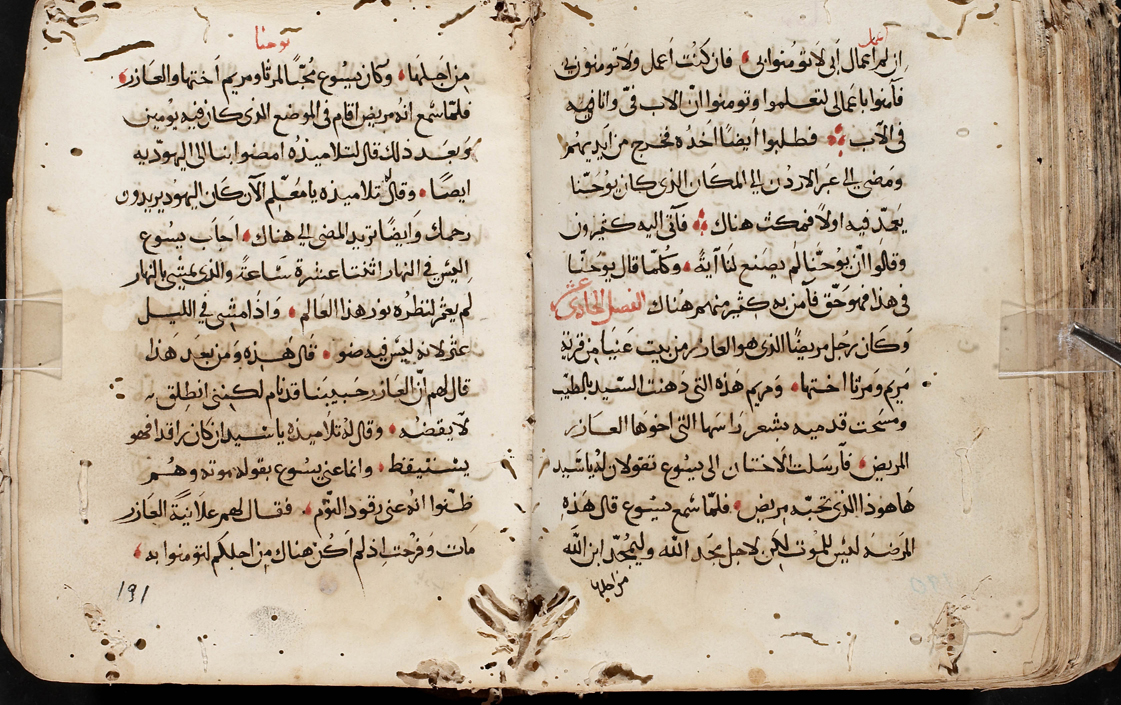 اعمال
ان لم اعمال ابي لا تومنوا بي فان كنت اعمل ولا تومنون بي
فآمنوا باعمالي لتعلموا وتومنوا ان الاب فيّ وانا فيه
في الآب فطلبوا ايضًا اخذه فخرج من ايديهم
ومضى الى عبر الاردن الى المكان الذي كان يوحنا
يعمّد فيه اولاً فمكث هناك فأتى اليه كثيرون
وقالوا انّ يوحنّا لم يصنع لنا آيةً وكلما قال يوحنّا
في هذا فهو حق فآمن به كثير منهم هناك الفصل الحادي عشر
وكان رجل مريضًا الذي هو العازر من بيت عنيا من قرية
مريم ومرتا اختها ومريم هذه التي دهنت السيد بالطيب
ومسحت قدميه بشعر راسها التي اخوها العازر
المريض فأرسلت الاختان الى يسوع تقولان له يا سيد
هاهوذا الذي تحبّه مريض فلمّا سمع يسوع قال هذه
المرضة ليس للموت لكن لاجل مجد الله وليمجّد ابن الله
من اجلها
يوحنا
من اجلها وكان يسوع محبًّا لمرتا ومريم اختها والعازر
فلمّا سمع انه مريض اقام في الموضع الذي كان فيه يومين
وبعد ذلك قال لتلاميذه امضوا بنا الى اليهوديه
ايضًا وقال تلاميذه يا معلّم الآن كان اليهود يريدون
رجمك وايضًا تريد المضي الى هناك اجاب يسوع
اليس في النهار اثنتا عشرة ساعةً والذي يمشي بالنهار
لم يعثر لنظره نور هذا العالم واذا مشى في الليل
عثر لانه ليس فيه ضو قال هذه ومن بعد هذا
قال لهم انّ العازر حبيبنا قد نام لكنني انطلق
لايقضه وقال له تلاميذه يا سيد ان كان راقدا فهو
يستنيقظ وانما عنى يسوع بقوله موته وهم
ظنّوا انه عنى رقود النوم فقال لهم علانيةً العازر
مات وفرحت اذ لم اكن هناك من اجلكم لتومنوا به
191